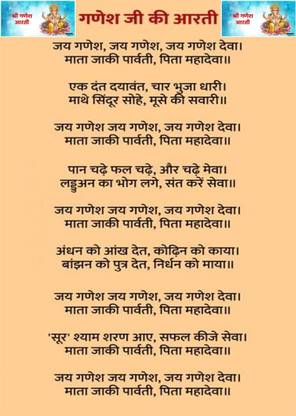 श्री गणेश
आरती
गणेश जी की आरती
श्री गणेश
आरती
जय गणेश, जय गणेश, जय गणेश देवा।
माता जाकी पार्वती, पिता महादेवा॥
एक दंत दयावंत, चार भुजा धारी।
माथे सिंदूर सोहे, मूसे की सवारी॥
जय गणेश जय गणेश, जय गणेश देवा।
माता जाकी पार्वती, पिता महादेवा॥
पान चढ़े फल चढ़े, और चढ़े मेवा।
लड्डुअन का भोग लगे, संत करें सेवा॥
जय गणेश जय गणेश, जय गणेश देवा।
माता जाकी पार्वती, पिता महादेवा॥
अंधन को आंख देत, कोढ़िन को काया।
बांझन को पुत्र देत, निर्धन को माया॥
जय गणेश जय गणेश, जय गणेश देवा।
माता जाकी पार्वती, पिता महादेवा॥
'सूर' श्याम शरण आए, सफल कीजे सेवा।
माता जाकी पार्वती, पिता महादेवा॥
जय गणेश जय गणेश, जय गणेश देवा।
माता जाकी पार्वती, पिता महादेवा॥